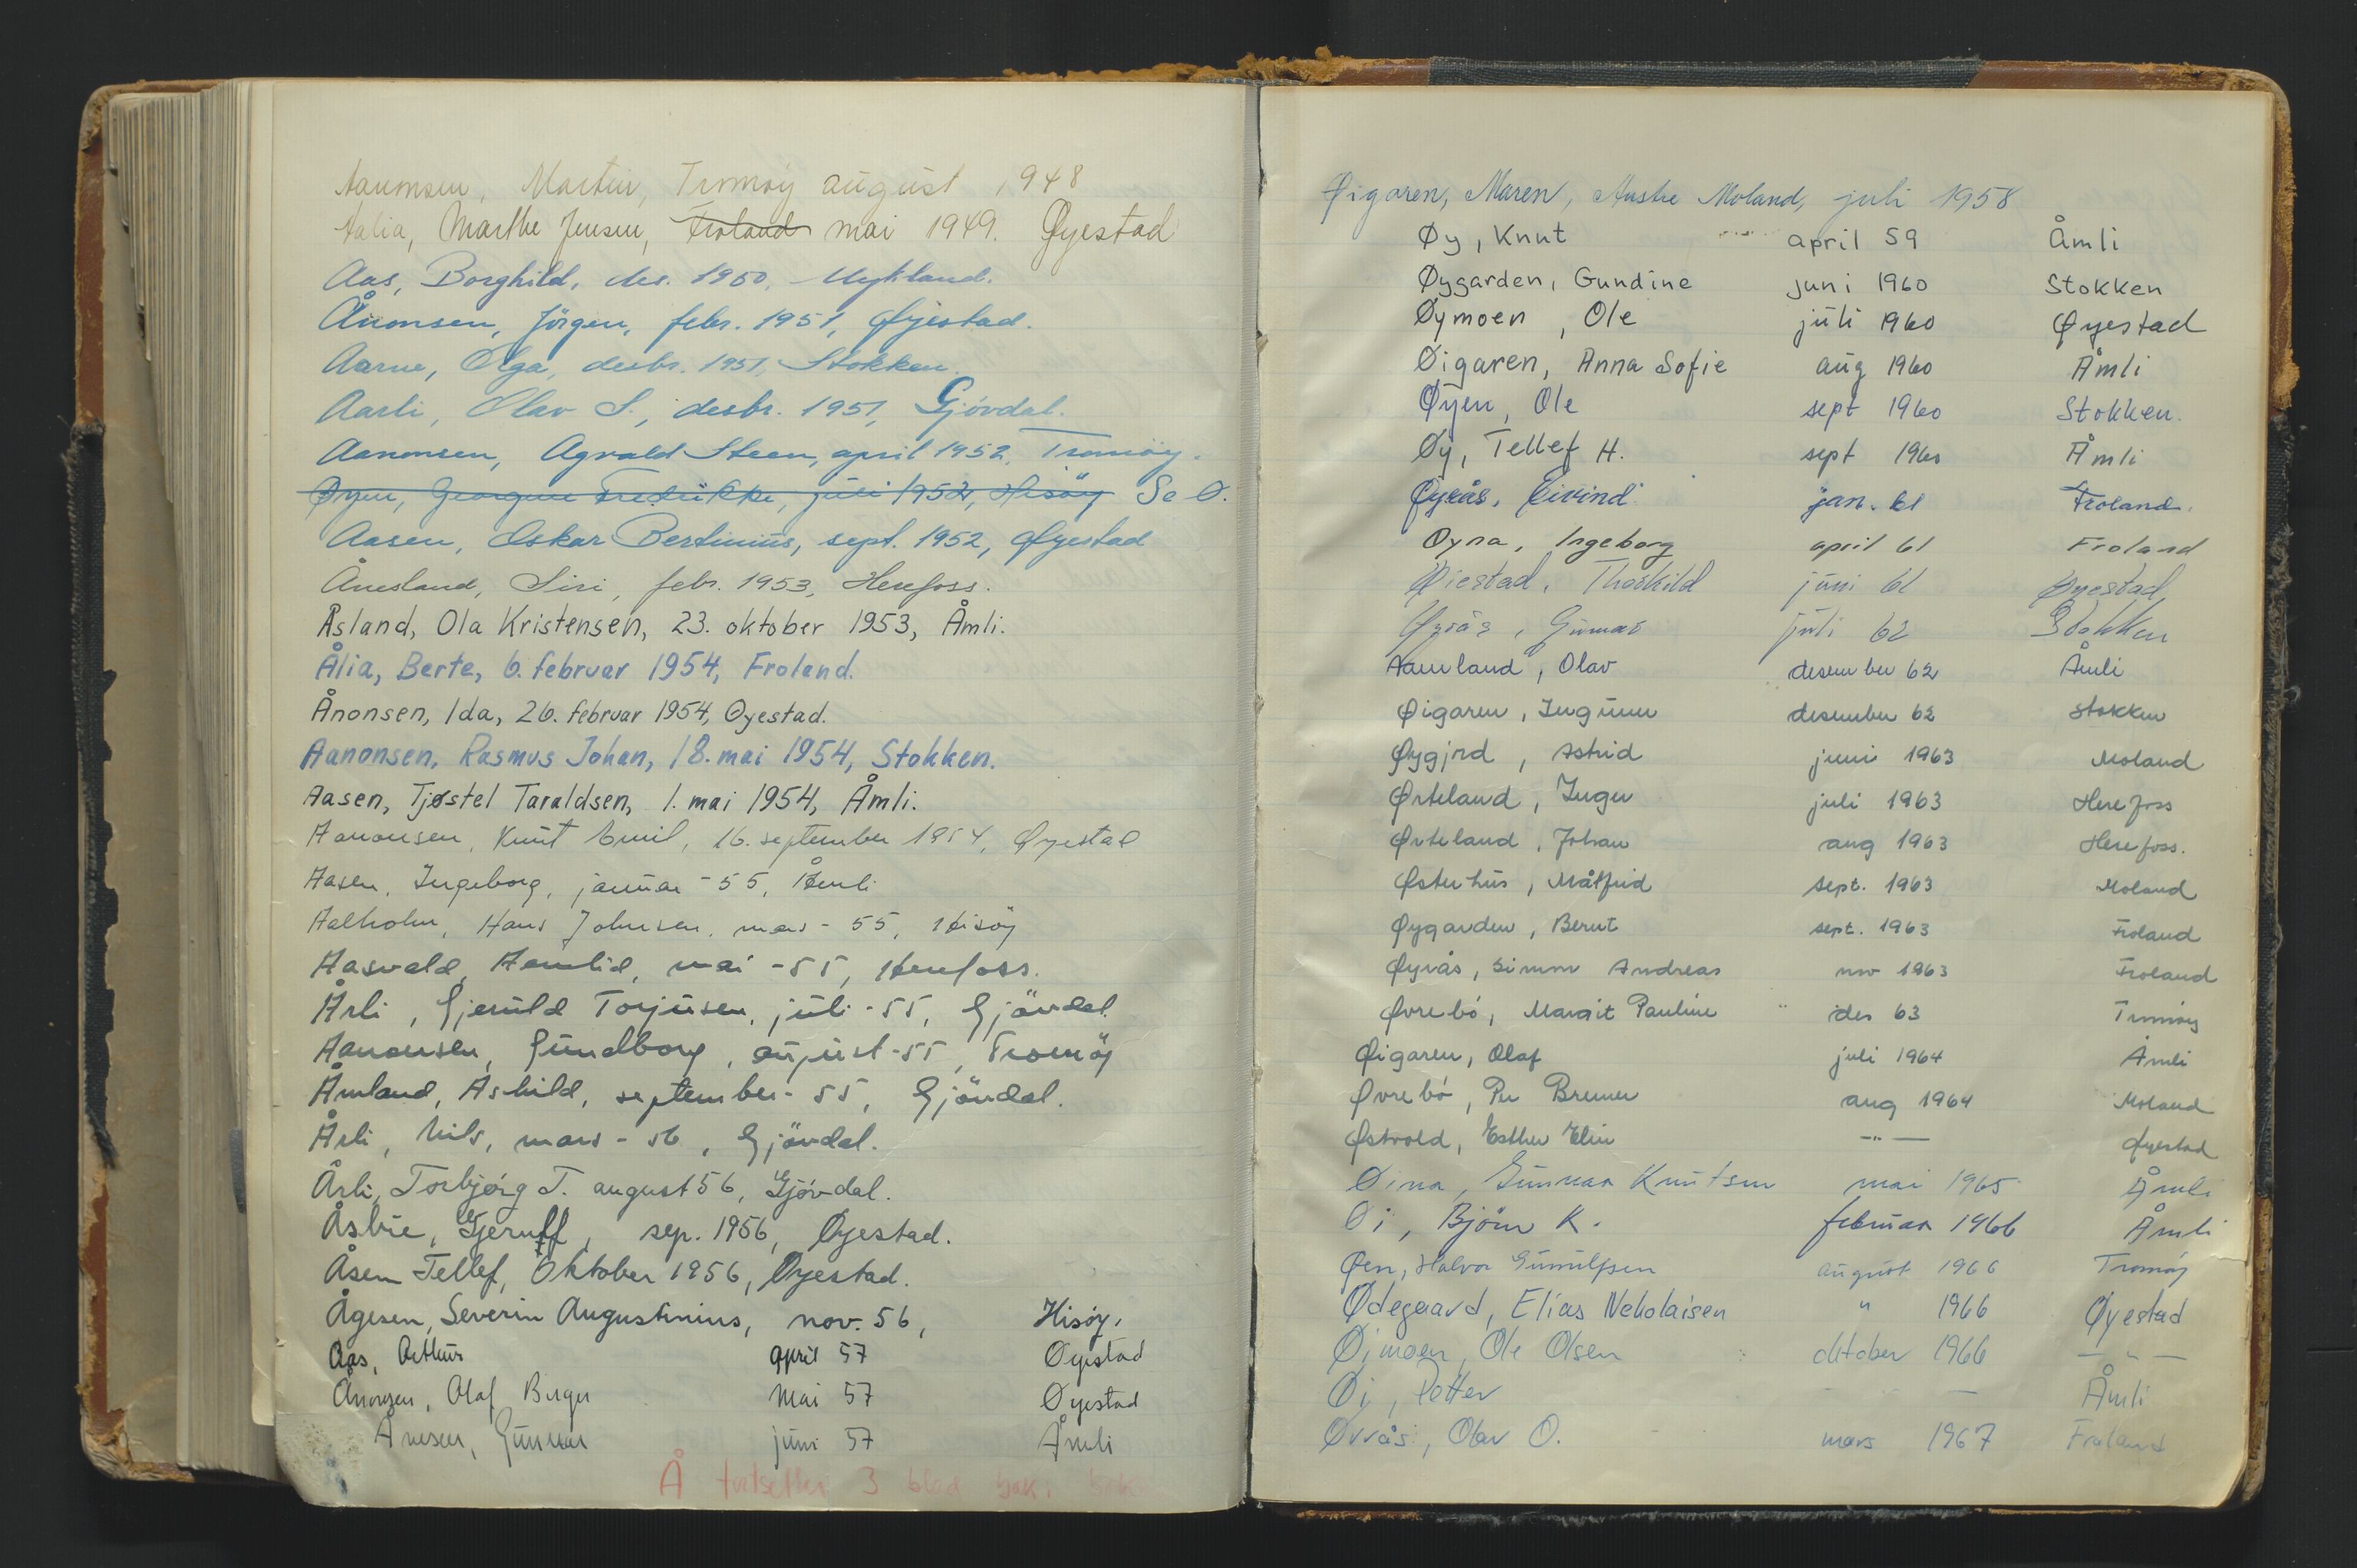 Aanonsen, Martin, Tromøy august 1948
Aalia, Marthe Jensen, Froland mai 1949. Øyestad
Aas, Borghild, des. 1950, Mykland.
Ånonsen, Jörgen, febr. 1951, Øyestad.
Aarne, Olga, desbr. 1951, Stokken.
Aarli, Olav S., desbr. 1951, Gjövdal.
Aanonsen, Agvald Steen, april 1952, Tromöy.
Øyen, Georgine Fredrikke, juli 1952, Hisöy Se Ø.
Aasen, Oskar Bertinius, sept. 1952, Øyestad
Ånesland, Siri, febr. 1953, Herefoss.
Åsland, Ola Kristensen, 23. oktober 1953, Åmli.
Ålia, Berte, 6. februar 1954, Froland.
Ånonsen, Ida, 26. februar 1954, Øyestad.
Aanonsen, Rasmus Johan, 18. mai 1954, Stokken.
Aasen, Tjøstel Taraldsen, 1. mai 1954, Åmli.
Aanonsen, Knut Emil, 16. september 1954, Øyestad
Aasen, Ingeborg, januar -55, Åmli
Aalholm, Hans Johnsen, mars - 55, Hisöy
Aasvald, mai -55, Herefoss.
Årli, Gjeruld Torjusen, juli -55, Gjövdal.
Aanonsen, Gundborg, august -55, Tromöy
Åmland, Åshild, september - 55, Gjövdal.
Årli, Nils, mars - 56, Gjövdal.
Årli, Torbjörg T. august 56, Gjövdal.
Åsbie, Gjeruff, sep. 1956, Øyestad.
Åsen Tellef, Oktober 1956, Øyestad.
Ågesen, Severin Augustinius, nov. 56, Hisöy,
Aas, Arthur april 57 Øyestad
Ånonsen, Olaf Birger mai 57 Øyestad
Ånesen, Gunnar juni 57 Åmli
Å fortsetter 3 blad bak i boka
Øigaren, Maren, Austre Moland, juli 1958
Øy, Knut april 59 Åmli
Øygarden, Gundine juni 1960 Stokken
Øymoen, Ole juli 1960 Øyestad
Øigaren, Anna Sofie aug 1960 Åmli
Øyen, Ole sept 1960 Stokken.
Øy, Tellef H. sept 1960 Åmli
Øyrås, Eivind jan. 61 Froland.
Øyna, Ingeborg april 61 Froland
Øiestad, Thorhild juni 61 Øyestad
Øyrås, Gunnar juli 62 Stokken
Aamland, Olav desember 62 Åmli
Øigaren, Ingunn desember 62 Stokken
Øygjrd, Astrid juni 1963 Moland
Ørteland, Inger juli 1963 Herefoss
Ørteland, Johan aug 1963 Herefoss.
Østerhus, Målfrid sept. 1963 Moland
Øygarden, Bernt sept. 1963 Froland
Øyrås, Simon Andreas nov 1963 Froland
Øvrebö, Margit Pauline des 63 Tromöy
Øigaren, Olaf juli 1964 Åmli
Øvrebö, Per Bremer aug 1964 Moland
Østvold, Esther Elin —"— Øyestad
Øina, Gunnar Knutsen mai 1965 Åmli
Øi, Björn K. februar 1966 Åmli
Øen, Halvor Gunulfsen august 1966 Tromöy
Ødegaard, Elias Nekolaisen " 1966 Øyestad
Øimoen, Ole Olsen oktober 1966 —"—
Øi, Petter — — Åmli
Øvrås, Olav O. mars 1967 Froland